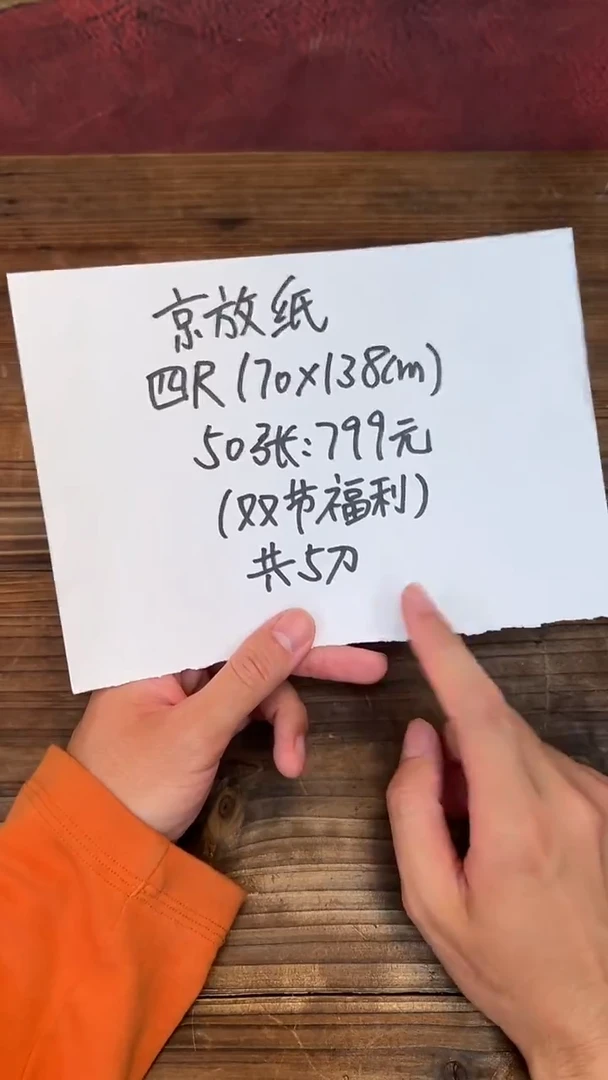 京放纸
四尺(70×138cm)
50张:799元
(双节福利)
共5刀